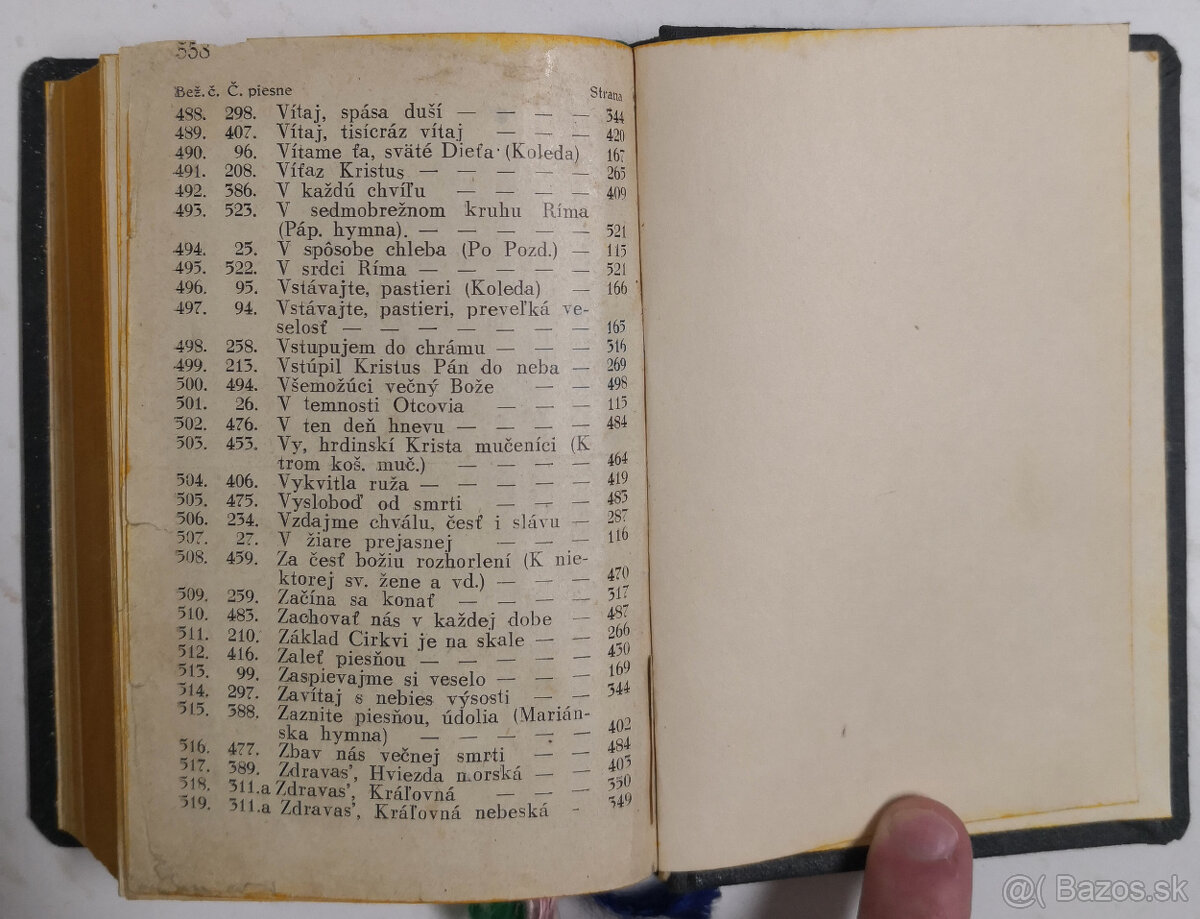 558
Bež. č. Č. piesne Strana
488. 298. Vítaj, spása duší — — — — 344
489. 407. Vítaj, tisícráz vítaj — — — 420
490. 96. Vítame ťa, sväté Dieťa (Koleda) 167
491. 208. Víťaz Kristus — — — — — 265
492. 386. V každú chvíľu — — — — 409
493. 523. V sedmobrežnom kruhu Ríma
(Páp. hymna). — — — — — 521
494. 25. V spôsobe chleba (Po Pozd.) — 115
495. 522. V srdci Ríma — — — — — 521
496. 95. Vstávajte, pastieri (Koleda) — 166
497. 94. Vstávajte, pastieri, preveľká ve-
selosť — — — — — — — 165
498. 258. Vstupujem do chrámu — — — 316
499. 213. Vstúpil Kristus Pán do neba — 269
500. 494. Všemožúci večný Bože — — 498
501. 26. V temnosti Otcovia — — — 115
502. 476. V ten deň hnevu — — — — 484
503. 453. Vy, hrdinskí Krista mučeníci (K
trom koš. muč.) — — — — 464
504. 406. Vykvitla ruža — — — — — 419
505. 475. Vysloboď od smrti — — — 483
506. 234. Vzdajme chválu, česť i slávu — 287
507. 27. V žiare prejasnej — — — 116
508. 459. Za česť božiu rozhorlení (K nie-
ktorej sv. žene a vd.) — — — 470
509. 259. Začína sa konať — — — — 317
510. 483. Zachovať nás v každej dobe — 487
511. 210. Základ Cirkvi je na skale — — 266
512. 416. Zaleť piesňou — — — — — 430
513. 99. Zaspievajme si veselo — — — 169
514. 297. Zavítaj s nebies výsosti — — 344
515. 388. Zaznite piesňou, údolia (Marián-
ska hymna) — — — — — 402
516. 477. Zbav nás večnej smrti — — 484
517. 389. Zdravas', Hviezda morská — — 403
518. 311.a Zdravas', Kráľovná — — — 350
519. 311.a Zdravas', Kráľovná nebeská - 349
@( Bazos.sk